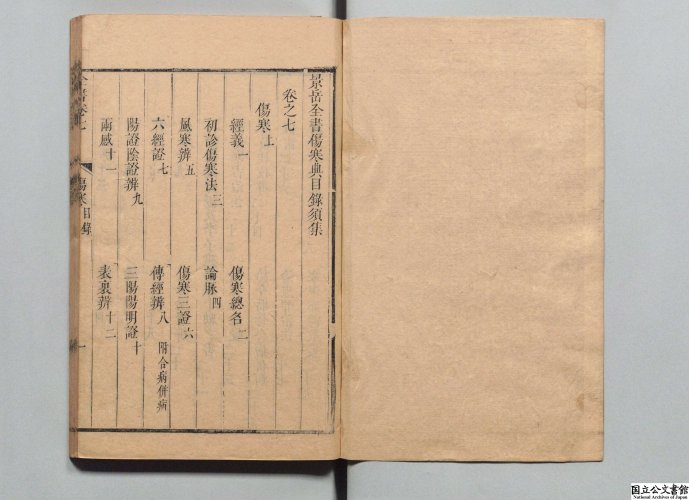 景岳全書傷寒典目錄須集
卷之七
傷寒上
經義一 傷寒總名二
初診傷寒法三 論脉四
風寒辨五 傷寒三證六
六經證七 傳經辨八 附合病併病
陽證陰證辨九 三陽陽明證十
兩感十一 表裏辨十二
全書卷七 傷寒目錄 一
国立公文書館
National Archives of Japan